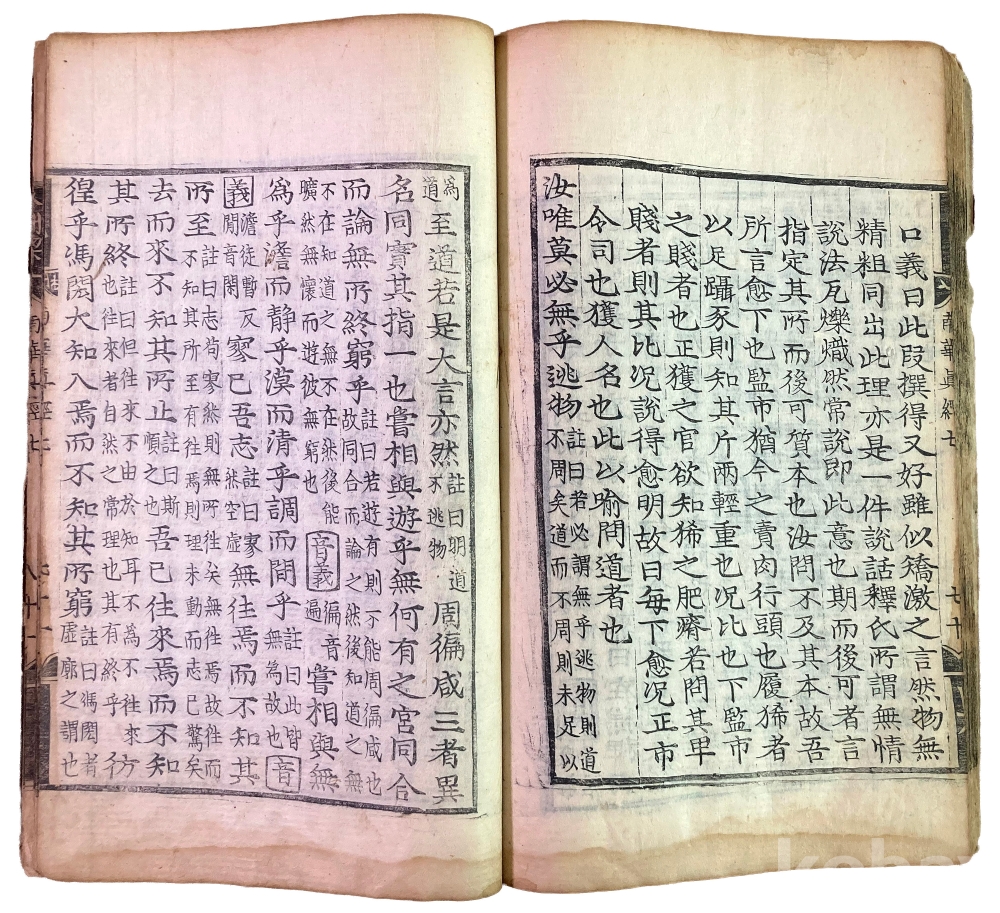 口義曰此段撰得又好雖似矯激之言然物無
精粗同出此理亦是一件說話釋氏所謂無情
說法瓦爍熾然常說即此意也期而後可者言
指定其所而後可質本也汝問不及其本故吾
所言愈下也監市猶今之賣肉行頭也履狶者
以足躡豕則知其斤兩輕重也况比也下監市
之賤者也正獲之官欲知狶之肥瘠若問其卑
賤者則其比况說得愈明故曰每下愈况正市
令司也獲人名也此以喻問道者也
汝唯莫必無乎逃物註曰若必謂無乎逃物則道
不周矣道而不周則未足以
南華眞經七
七十
為
道至道若是大言亦然註曰明道
不逃物周徧咸三者異
名同實其指一也嘗相與遊乎無何有之宮同合
而論無所終窮乎註曰若遊有則不能周徧咸也
故同合而論之然後知道之無
不在知道之無不在然後能
曠然無懷而遊彼無窮也音義徧音
遍嘗相與無
為乎澹而静乎漠而清乎調而間乎註曰此皆
無為故也音
義澹徒暫反
間音閑寥已吾志註曰寥
然空虛無往焉而不知其
所至註曰志苟寥然則無所往矣無往焉故往而
不知其所至有往焉則理未動而志已驚矣
去而來不知其所止註曰斯
順之也吾已往來焉而不知
其所終註曰但往來不由於知耳不為不往來
也往來者自然之常理也其有終乎彷
徨乎馮閎大知入焉而不知其所窮註曰馮閎者
虛廓之謂也